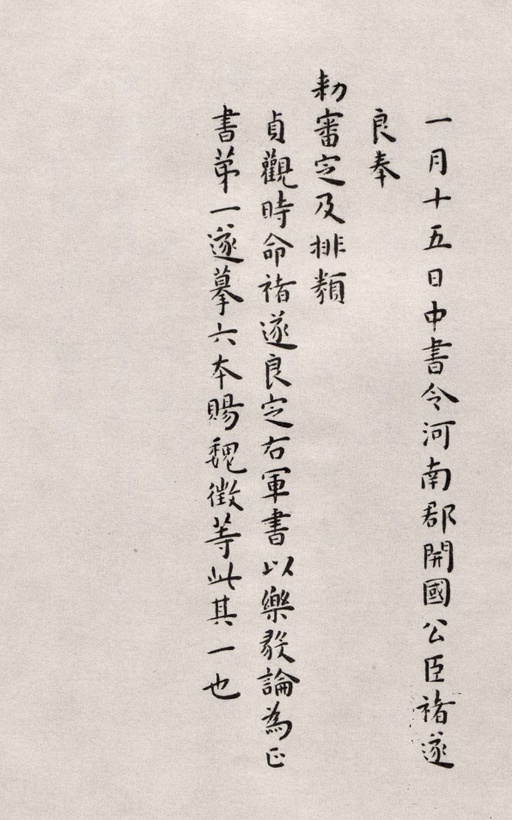 一月十五日中書令河南郡開國公臣褚遂
良奉
勑審定及排類
貞觀時命褚遂良定右軍書以樂毅論為正
書苐一遂摹六本賜魏徵等此其一也